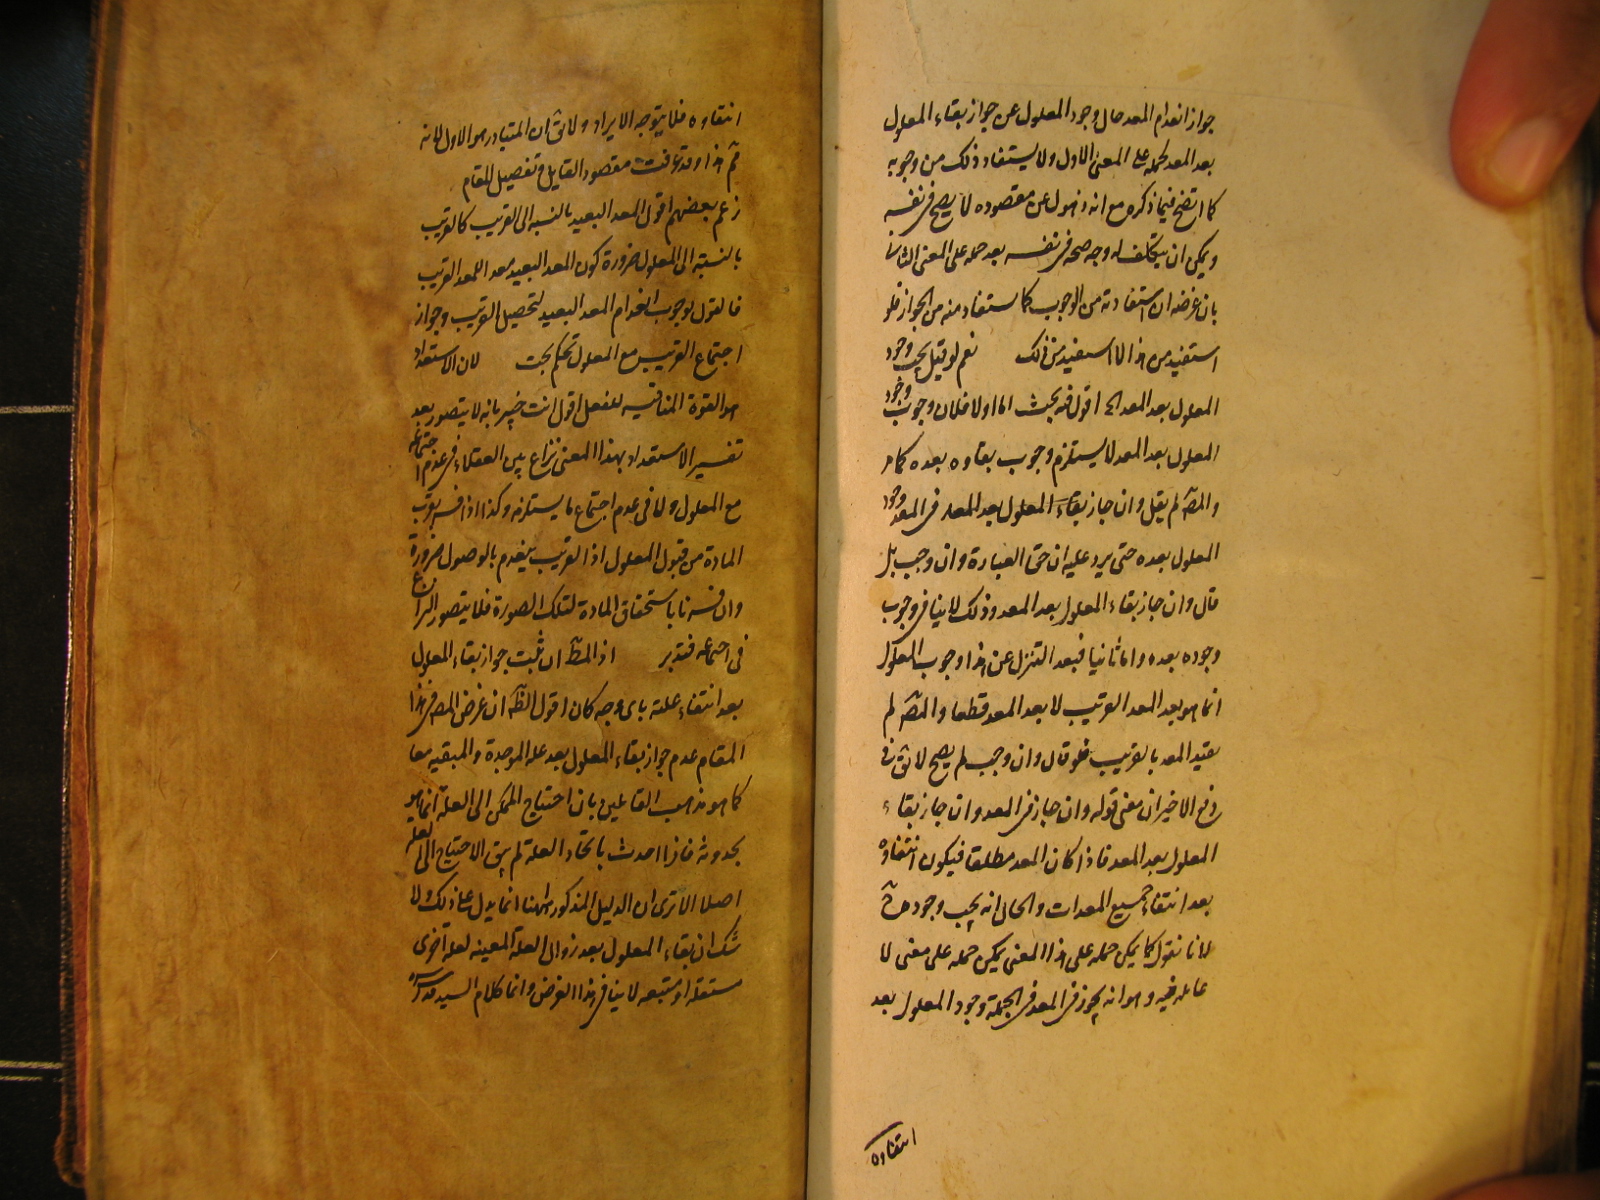 جواز انعدام المعد حال وجود المعلول عن جواز بقاء المعلول
بعد المعد لحمله على المعنى الاول ولا يستفاد ذلك من وجوبه
كما اتضح فيما ذكره مع انه ذهول عن مقصوده لا يصح فى نفسه
ويمكن ان يتكلف له وجه صحه فى نفسه بعد حمله على المعنى الثانى
بان غرضه ان استفادته من الوجوب كاستفادته من الجواز فلو
استفيد من هذا لاستفيد من ذلك نعم لو قيل يجب وجود
المعلول بعد المعد الخ اقول فيه بحث اما اولا فلان وجوب وجود
المعلول بعد المعد لا يستلزم وجوب بقاوه بعده كما مر
والمصَ لم يقل وان جاز بقاء المعلول بعد المعد فى المعد وجود
المعلول بعده حتى يرد عليه ان حق العبارة وان وجب بل
قال وان جاز بقاء المعلول بعد المعد وذلك لا ينافى وجوب
وجوده بعده واما ثانيا فبعد التنزل عن هذا وجوب المعلول
انما هو بعد المعد القريب لا بعد المعد قطعا والمصَ لم
يقيد المعد بالقريب فلو قال وان وجب لم يصح لا يق فى
دفع الاخير ان معنى قوله وان جاز فى المعد وان جاز بقاء
المعلول بعد المعد فاذا كان المعد مطلقا فيكون انتفاوه
بعد انتفاء جميع المعدات والحال انه يجب وجوده ح
لانا نقول كما يمكن حمله على هذا المعنى يمكن حمله على معنى لا
غايله فيه وهو انه يجوز فى المعد فى الجملة وجود المعلول بعد
انتفاوه
انتفاوه فلا يتوجه الايراد ولا يق ان المتبادر هو الاول لانه
ثم هذا وقد عرفت مقصود القايل فى تفصيل المقام
زعم بعضهم اقول المعد البعيد بالنسبه الى القريب كالقريب
بالنسبة الى المعلول ضرورة كون المعد البعيد معد للمعد القريب
فالقول بوجوب انعدام المعد البعيد لتحصيل القريب وجواز
اجتماع القريب مع المعلول تحكم بحت لان الاستعداد
هو القوة المنافيه للفعل اقول انت خبير بانه لا يتصور بعد
تفسير الاستعداد بهذا المعنى نزاع بين العقلاء فى عدم اجتماعه
مع المعلول ولا فى عدم اجتماع ما يستلزمه وكذا اذا فسر بقرب
المادة من قبول المعلول اذ القريب ينعدم بالوصول ضرورة
وان فسرنا باستحقاق المادة لتلك الصورة فلا يتصور النزاع
فى اجتماعه فتدبر اذ المط ان ثبت جواز بقاء المعلول
بعد انتفاء علته باى وجه كان اقول الظَ ان غرض المص فى هذا
المقام عدم جواز بقاء المعلول بعد عله الموجدة والمبقيه معا
كما هو مذهب القائلين بان احتياج الممكن الى العلة انما هو
بحدوثه فاذا احدث باتحاد العلة لم يبق الاحتياج الى العله
اصلا الا ترى ان الدليل المذكور ههنا انما يدل على ذلك ولا
شك ان بقاء المعلول بعد زوال العلة المعينه لعله اخرى
مستقله او مستبعه لا ينافى هذا الغرض وانما كلام السيد قدس سره